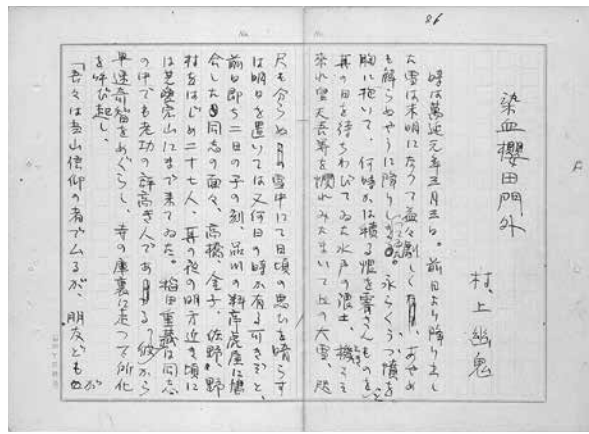 86
染血櫻田門外
村上幽鬼
時は萬延元年三月三日。前日より降り出し
大雪は未明になって益々劇しく、あやめ
も解らぬやうに降りしきる。永らくうつ憤を
胸に抱いて、何時かは積る恨を霽さんものと
其の日を待ちわびてゐた水戸の浪士、機こそ
来れ皇天吾等を憫れみたまいて此の大雪、咫
尺も分らぬ雪中にて日頃の思ひを晴らす
は明日を置いては又何日の時か有る可きぞと、
前日即ち二日の子の刻、品川の料亭虎屋に會
合した同志の面々、高橋、金子、佐野、野
村をはじめ二十七人、其の夜の明方近き頃に
は芝愛宕山にまで来てゐた。稲田重蔵は同志
の中でも老功の評高き人である。彼から
早速奇智をめぐらし、寺の庫裏に走つて所化
を呼び起し、
「吾々は当山信仰の者でムるが、朋友どもが